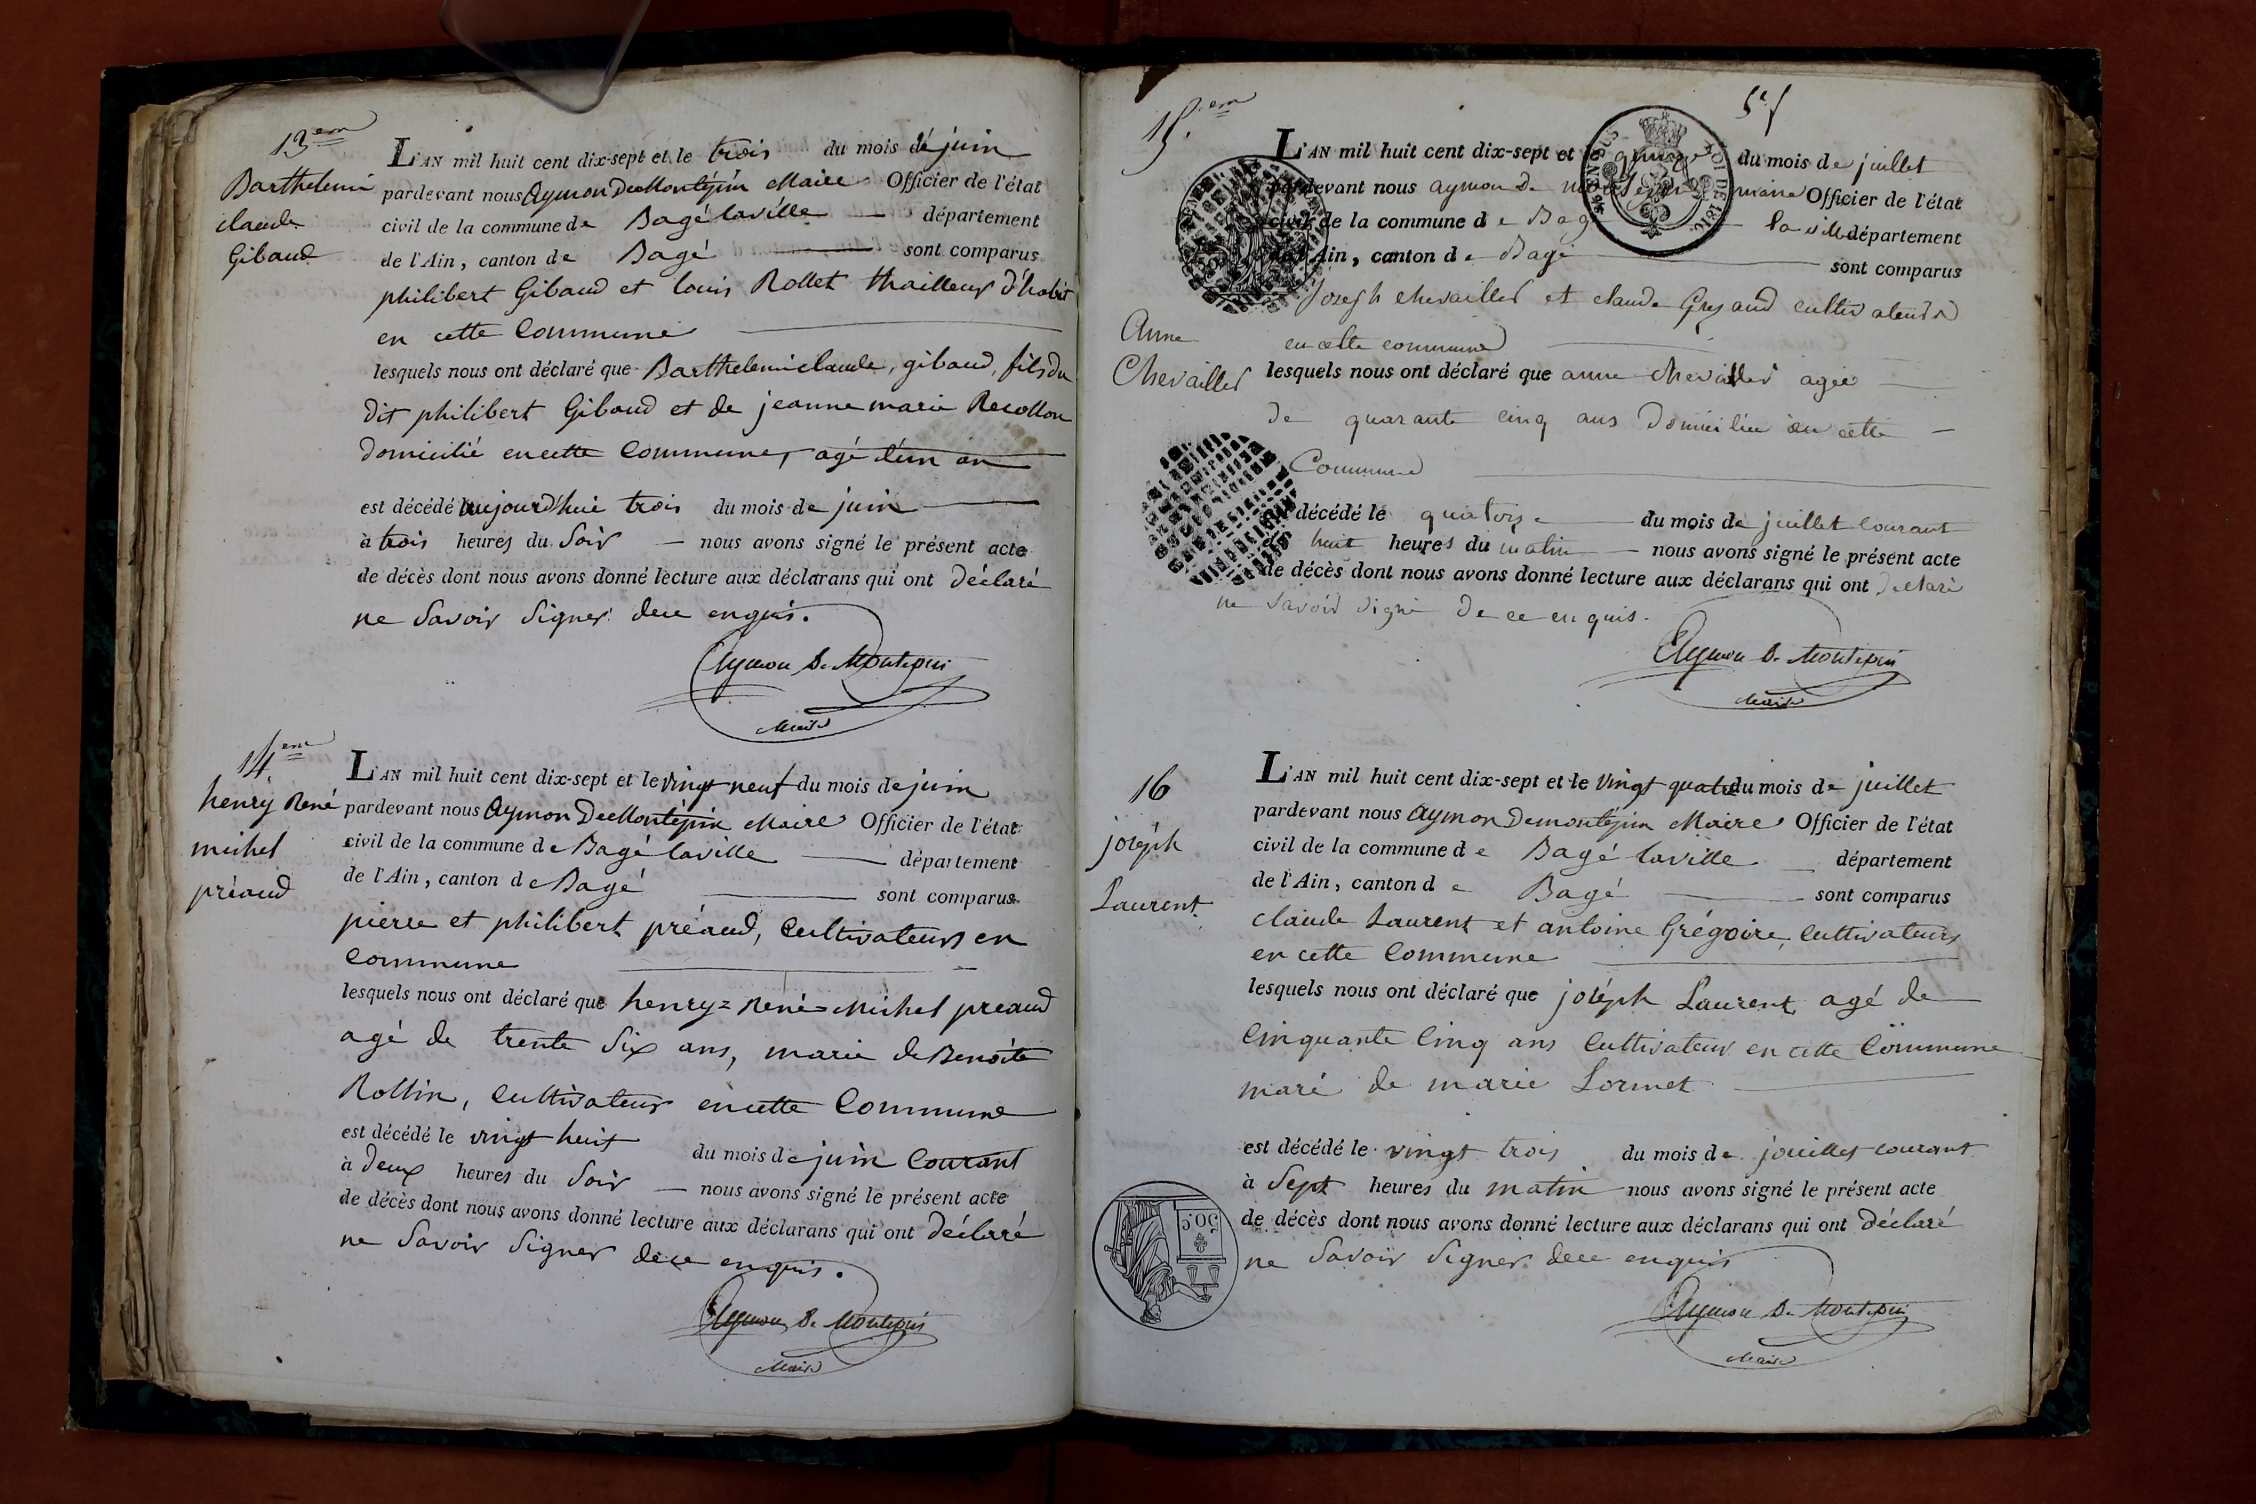 13em
Barthelemi
claude
Gibaud
L'AN mil huit cent dix-sept et le trois du mois de juin
pardevant nous Aymon DeMontépin Maire Officier de l'état
civil de la commune de Bagé laville département
de l'Ain, canton de Bagé sont comparus
philibert Gibaud et louis Rollet thailleur d'habit
en cette Commune
lesquels nous ont déclaré que Barthelemi claude, gibaud, fils du
dit philibert Gibaud et de jeanne marie Recollon
domicilié en cette Commune, agé d'un an
est décédé aujourd'hui trois du mois de juin
à trois heures du Soir nous avons signé le présent acte
de décès dont nous avons donné lecture aux déclarans qui ont déclaré
ne Savoir Signer dece enquis.
Aymon De Montepin
Maire
14em
henry René
michel
préaud
L'AN mil huit cent dix-sept et le vingt neuf du mois de juin
pardevant nous Aymon DeMontépin Maire Officier de l'état
civil de la commune de Bagé laville département
de l'Ain, canton de Bagé sont comparus
pierre et philibert préaud, Cultivateurs en
Commune
lesquels nous ont déclaré que henry=René=Michel preaud
agé de trente Six ans, marie de Benoite
Rollin, Cultivateur en cette Commune
est décédé le vingt huit du mois de juin Courant
à deux heures du Soir nous avons signé le présent acte
de décès dont nous avons donné lecture aux déclarans qui ont déclaré
ne Savoir Signer dece enquis.
Aymon De Montepin
Maire
15.em
Anne
Chevailler
L'AN mil huit cent dix-sept et le quinze du mois de juillet
pardevant nous aymon De maire Officier de l'état
civil de la commune de Bagé la ville département
de l'Ain, canton de Bagé sont comparus
Joseph chevailler et claude Greyaud cultivateurs
en cette commune
lesquels nous ont déclaré que anne chevailler agée
de quarante cinq ans Domiciliée en cette
Commune
est décédé le quatorze du mois de juillet courant
à huit heures du matin nous avons signé le présent acte
de décès dont nous avons donné lecture aux déclarans qui ont declaré
ne Savoir signé De ce enquis.
Aymon De Montepin
Maire
16
joséph
Laurent
L'AN mil huit cent dix-sept et le vingt quatre du mois de juillet
pardevant nous Aymon Demontépin Maire Officier de l'état
civil de la commune de Bagé laville département
de l'Ain, canton de Bagé sont comparus
claude Laurent et antoine Grégoire, Cultivateurs
en cette Commune
lesquels nous ont déclaré que joséph Laurent agé de
Cinquante Cinq ans Cultivateur en cette Commune
maré de marie Lormet
est décédé le vingt trois du mois de jouillet courant
à Sept heures du matin nous avons signé le présent acte
de décès dont nous avons donné lecture aux déclarans qui ont déclaré
ne Savoir Signer dece enquis
50 C.
Aymon De Montepin
Maire